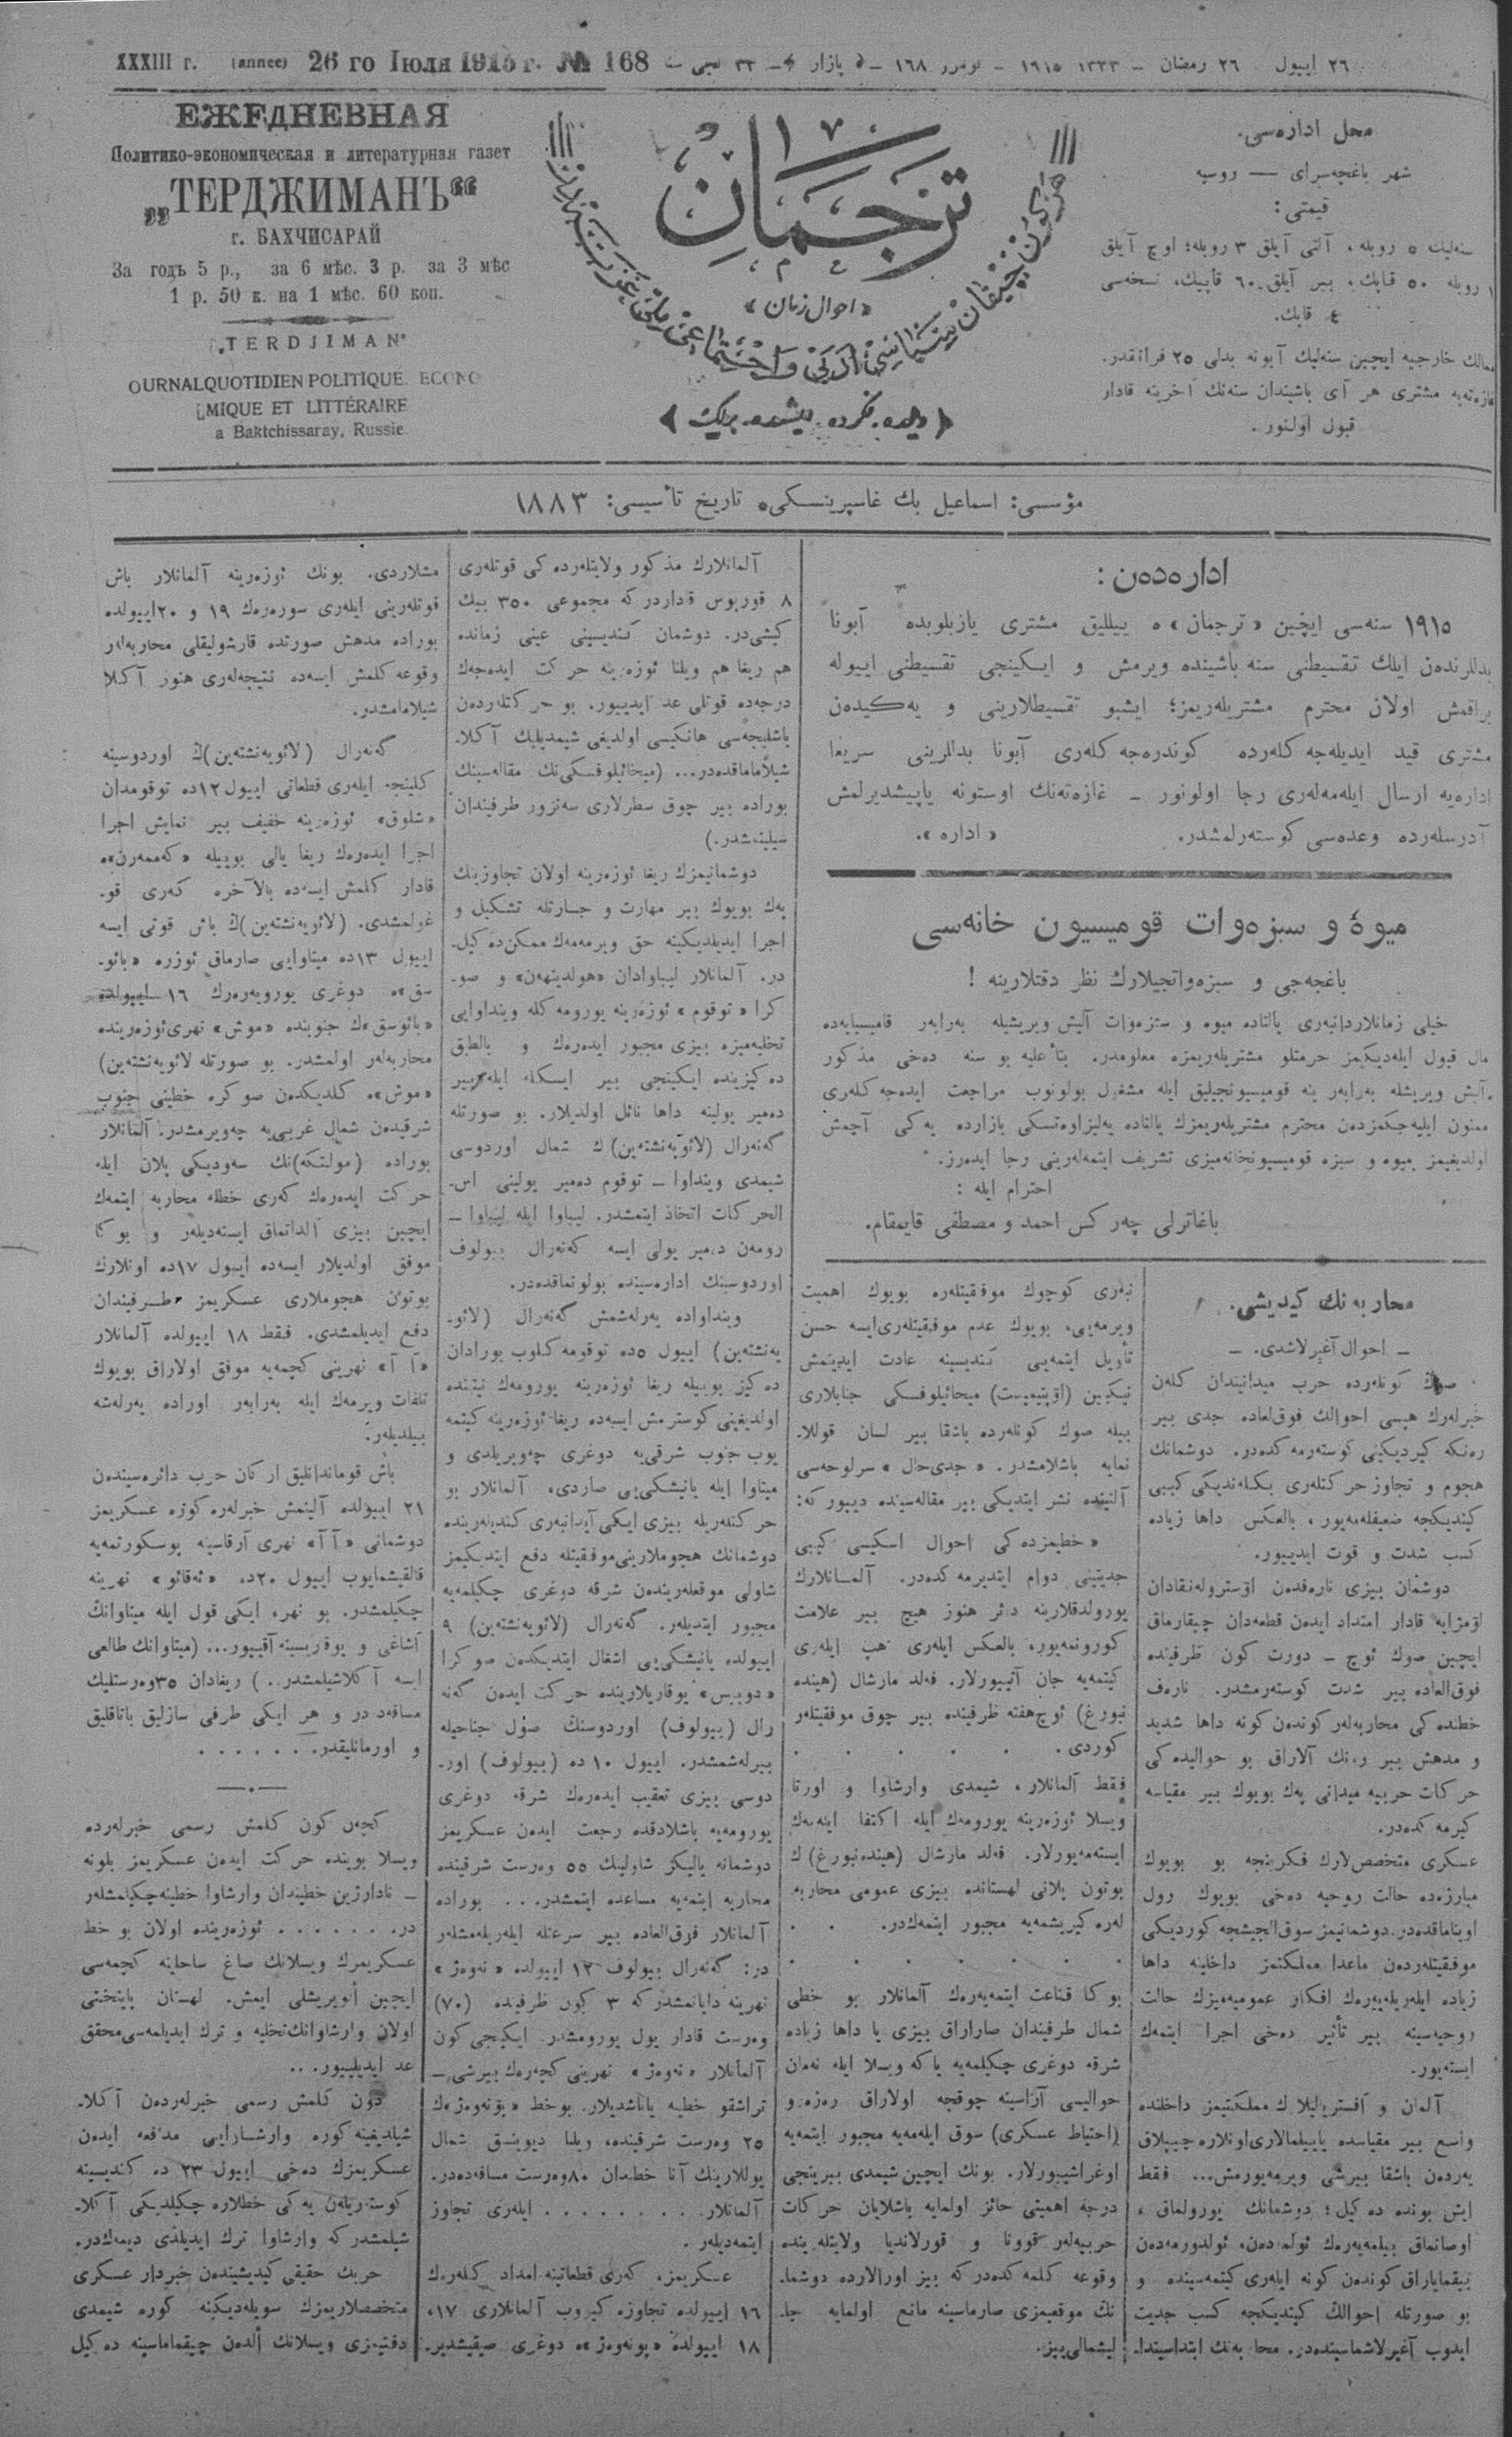 XXXIII г. (annee) 26 го Іюля 1915 г. № 168
٢٦ ایپول ٢٦ رمضان – ١٣٣٣ ١٩١٥ – نومرو ١٦٨ – بازار – ٣٣ نجی سنه
ЕЖЕДНЕВНАЯ
Политико-экономическая и литературная газет
„ТЕРДЖИМАНЪ“
г. БАХЧИСАРАЙ
За годъ 5 р., за 6 мѣс. 3 р. за 3 мѣс
1 р. 50 к. на 1 мѣс. 60 коп.
„TERDJIMAN“
OURNALQUOTIDIEN POLITIQUE. ECONO
MIQUE ET LITTÉRAIRE
a Baktchissaray, Russie
ترجمان
« احوال زمان »
دیلده، فکرده، ایشده، برلیك
محل اداره‌سی.
شهر باغچه‌سرای — روسیه
قیمتی:
سنه‌لیك ٥ روبله، آلتی آیلق ٣ روبله؛ اوچ آیلق
١ روبله ٥٠ قاپك، بیر آیلق ٦٠ قاپیك، نسخه‌سی
٤ قاپك.
ممالك خارجیه ایچین سنه‌لیك آبونه بدلی ٢٥ فرانقدر.
غازه‌ته‌یه مشتری هر آی باشیندان سنه‌نك آخرینه قادار
قبول اولنور.
مؤسسی: اسماعیل بك غاسپرینسكی، تاریخ تأسیسی: ١٨٨٣
اداره‌ده‌ن:
١٩١٥ سنه‌سی ایچین « ترجمان » ه ییللیق مشتری یازیلوبده آبونا
بدللرنده‌ن ایلك تقسیطنی سنه باشینده ویرمش و ایكینجی تقسیطنی اییوله
براقمش اولان محترم مشتریله‌ریمز؛ ایشبو تقسیطلارینی و یه‌كیده‌ن
مشتری قید ایدیله‌جه كله‌رده كونده‌ره‌جه كله‌ری آبونا بدللرینی سریعا
اداره‌یه ارسال ایله‌مه‌له‌ری رجا اولونور – غازه‌ته‌نك اوستونه یاپیشدیرلمش
آدرسله‌رده وعده‌سی كوسته‌رلمشدر. « اداره ».
میوۀ و سبزه‌وات قومیسیون خانه‌سی
باغچه‌جی و سبزه‌واتجیلارك نظر دقتلارینه !
خیلی زمانلاردانبه‌ری یالتاده میوه و سبزه‌وات آلیش ویریشیله به‌رابه‌ر قامیسیایه‌ده
مال قبول ایله‌دیكمز حرمتلو مشتریله‌ریمزه معلومدر. بناءعلیه بو سنه ده‌خی مذكور
آلیش ویریشله به‌رابه‌ر ینه قومیسیونجیلیق ایله مشغول بولونوب مراجعت ایده‌جه كله‌ری
ممنون ایلیه‌جكمزدن محترم مشتریله‌ریمزك یالتاده یه‌لیزاوه‌تسكی بازارده یه كی آچمش
اولدیغیمز میوه و سبزه قومیسیونخانه‌میزی تشریف ایتمه‌له‌رینی رجا ایده‌رز.
احترام ایله :
باغاترلی چه‌ركس احمد و مصطفی قایمقام.
محاربه نك كیدیشی.
– احوال آغیرلاشدی. –
صوك كونله‌رده حرب میدانیندان كله‌ن
خبرله‌رك هپسی احوالك فوق‌العاده جدی بیر
ره‌نكه كیردیكینی كوسته‌رمه كده‌در. دوشمانك
هجوم و تجاوز حركتله‌ری بكله‌ندیكی كیبی
كیتدیكجه ضعیفله‌مه‌یور، بالعكس داها زیاده
كسب شدت و قوت ایدییور.
دوشمان بیزی ناره‌فده‌ن اوسترولنقادان
لومژایه قادار امتداد ایده‌ن قطعه‌دان چیقارماق
ایچین صوك ئوچ – دورت كون ظرفینده
فوق‌العاده بیر شدت كوسته‌رمشدر. ناره‌ف
خطنده كی محاربه‌له‌ر كونده‌ن كونه داها شدید
و مدهش بیر ره‌نك آلاراق بو حوالیده كی
حركات حربیه میدانی په‌ك بویوك بیر مقیاسه
كیرمه كده‌در.
عسكری متخصص‌لارك فكرینجه بو بویوك
مبارزه‌ده حالت روحیه ده‌خی بویوك رول
اویناماقده‌در. دوشمانیمز سوق‌الجیشجه كوردیكی
موفقیتله‌رده‌ن ماعدا مملكتمز داخلینه داها
زیاده ایله‌ریله‌یه‌ره‌ك افكار عمومیه‌میزك حالت
روحیه‌سینه بیر تأثیر ده‌خی اجرا ایتمه‌ك
ایسته‌یور.
آلمان و آفستریالیلا ك مملكتیمز داخلنده
واسع بیر مقیاسده یاییلمالاری اونلاره چیپلاق
یه‌رده‌ن باشقا بیرشی ویرمه‌یورمش... فقط
ایش بونده ده كیل؛ دوشمانك یورولماق،
اوصانماق بیلمه‌یه‌ره‌ك ئوله ده‌ن، ئولدورمه‌ده‌ن
بیقمایاراق كونده‌ن كونه ایله‌ری كیتمه‌سینده و
بو صورتله احوالك كیتدیكجه كسب جدیت
ایدوب آغیرلاشماسینده‌در. محاربه‌نك ابتداسیندا-
نبه‌ری كوچوك موفقیتله‌ره بویوك اهمیت
ویرمه‌یی، بویوك عدم موفقیتله‌ری‌ایسه حسن
تأویل ایتمه‌یی كندیسینه عادت ایدینمش
نیكبین (اوپتیمیست) میخائیلوفسكی جنابلاری
بیله صوك كونله‌رده باشقا بیر لسان قوللا-
نمایه باشلامشدر. « جدی‌حال » سرلوحه‌سی
آلتینده نشر ایتدیكی بیر مقاله‌سینده دییور كه:
« خطیمزده كی احوال اسكیسی كیبی
جدیتینی دوام ایتدیرمه كده‌در. آلمانلارك
یورولدقلارینه دائر هنوز هیچ بیر علامت
كورونمه‌یور، بالعكس ایله‌ری هپ ایله‌ری
كیتمه‌یه جان آتییورلار. فه‌لد مارشال (هینده
نبورغ) ئوچ‌هفته ظرفینده بیر چوق موفقیتله‌ر
كوردی. . . . . .
فقط آلمانلار، شیمدی وارشاوا و اورتا
ویسلا ئوزه‌رینه یورومه‌ك ایله اكتفا ایتمه‌ك
ایسته‌مه‌یورلار. فه‌لد مارشال (هینده‌نبورغ) ك
بوتون پلانی لهستانده بیزی عمومی محاربه
له‌ره كیریشمه‌یه مجبور ایتمه‌ك‌در. . .
. . . . . .
بو كا قناعت ایتمه‌یه‌ره‌ك آلمانلار بو خطی
شمال طرفیندان صاراراق بیزی یا داها زیاده
شرقه دوغری چكیلمه‌یه یا كه ویسلا ایله نه‌مان
حوالیسی آراسینه چوقجه اولاراق ره‌زه‌رو
(احتیاط عسكری) سوق ایله‌مه‌یه مجبور ایتمه‌یه
اوغراشییورلار. بونك ایچین شیمدی بیرینجی
درجه اهمیتی حائز اولمایه باشلایان حركات
حربیه‌له‌ر قوونا و قورلاندیا ولایتله‌رینده
وقوعه كلمه كده‌در كه بیز اورالارده دوشما-
نك موقعیمزی صارماسینه مانع اولمایه چا-
لیشمالی‌ییز.
آلمانلارك مذكور ولایتله‌رده كی قوتله‌ری
٨ قورپوس قداردر كه مجموعی ٣٥٠ بیك
كیشی‌در. دوشمان كندیسینی عینی زمانده
هم ریغا هم ویلنا ئوزه‌رینه حركت ایده‌جه‌ك
درجه‌ده قوتلی عد ایدییور. بو حركتله‌رده‌ن
باشلیجه‌سی هانكیسی اولدیغی شیمدیلیك آكلا-
شیلاماماقده‌در... (میخائیلوفسكی‌نك مقاله‌سینك
بوراده بیر چوق سطرلاری سه‌نزور طرفیندان
سیلینمشدر.)
دوشمانیمزك ریغا ئوزه‌رینه اولان تجاوزینك
په‌ك بویوك بیر مهارت و جسارتله تشكیل و
اجرا ایدیلدیكینه حق ویرمه‌مه‌ك ممكن‌ده كیل-
در. آلمانلار لیباوادان «هولدینهه‌ن» و صو-
كرا « توقوم » ئوزه‌رینه یورومه كله ویندوایی
تخلیه‌میزه بیزی مجبور ایده‌ره‌ك و بالطیق
ده كیزینده ایكینجی بیر ایسكله ایله بیر
ده‌میر یولینه داها نائل اولدیلار. بو صورتله
گه‌نه‌رال (لائویه‌نشته‌ین) ك شمال اوردوسی
شیمدی وینداوا – توقوم ده‌میر یولینی اس-
الحركات اتخاذ ایتمشدر. لیباوا ایله لیباوا –
رومه‌ن ده‌میر یولی ایسه گه‌نه‌رال بیولوف
اوردوسینك اداره‌سینده بولونماقده‌در.
وینداواده یه‌رله‌شمش گه‌نه‌رال (لائو-
یه‌نشته‌ین) اییول ٥ده توقومه كلوب بورادان
ده كیز بوییله ریغا ئوزه‌رینه یورومه‌ك نیتنده
اولدیغینی كوسترمش ایسه‌ده ریغا ئوزه‌رینه كیتمه
یوب جنوب شرقی‌یه دوغری چه‌ویریلدی و
میتاوا ایله یانیشكی‌یی صاردی، آلمانلار بو
حركتله‌ریله بیزی ایكی آیدانبه‌ری كندیله‌رینده
دوشمانك هجوملارینی‌موفقیتله دفع ایتدیكیمز
شاولی موقعله‌رینده‌ن شرقه دوغری چكیلمه‌یه
مجبور ایتدیله‌ر. گه‌نه‌رال (لائویه‌نشته‌ین) ٩
اییولده یانیشكی‌یی اشغال ایتدیكده‌ن صوكرا
«دوبیس» یوقاریلارینده حركت ایده‌ن گه‌نه
رال (بیولوف) اوردوسنك صول جناحیله
بیرله‌شمشدر. اییول ١٠ ده (بیولوف) اور-
دوسی بیزی تعقیب ایده‌ره‌ك شرقه دوغری
یورومه‌یه باشلادقده رجعت ایده‌ن عسكریمز
دوشمانه یالیكز شاولینك ٥٥ وه‌رست شرقینده
محاربه ایتمه‌یه مساعده ایتمشدر... بوراده
آلمانلار فوق‌العاده بیر سرعتله ایله‌ریله‌مشله‌ر
در: گه‌نه‌رال بیولوف ١٢ اییولده « نه‌وه‌ژ »
نهرینه دایانمشدر كه ٣ كون ظرفینده (٧٠)
وه‌رست قادار یول یورومشدر. ایكینجی كون
آلمانلار « نه‌وه‌ژ » نهرینی كچه‌ره‌ك بیرشی–
تراشقو خطنه یاناشدیلار. بوخط «پونه‌وه‌ژ»ك
٢٥ وه‌رست شرقینده، ویلنا دیوینسق شمال
یوللارینك آنا خطندان ٨٠وه‌رست مسافه‌ده‌در.
آلمانلار . . . . . . . . . ایله‌ری تجاوز
ایتمه‌دیله‌ر.
عسكریمز، كه‌ری قطعاتینه امداد كله‌ره‌ك
١٦ اییولده تجاوزه كیروب آلمانلاری ١٧،
١٨ اییولده «پونه‌وه‌ژ»ه دوغری صیقیشدیر-
مشلاردی. بونك ئوزه‌رینه آلمانلار باش
قوتله‌رینی ایله‌ری سوره‌ره‌ك ١٩ و ٢٠اییولده
بوراده مدهش صورتده قارشولیقلی محاربه‌له‌ر
وقوعه كلمش ایسه‌ده نتیجه‌له‌ری هنوز آكلا
شیلامامشدر.
گه‌نه‌رال (لائویه‌نشته‌ین)ك اوردوسینه
كلینجه ایله‌ری قطعاتی اییول ١٢ده توقومدان
«شلوق» ئوزه‌رینه خفیف بیر نمایش اجرا
اجرا ایده‌ره‌ك ریغا یالی بوییله «كه‌ممه‌رن»ه
قادار كلمش ایسه‌ده بالآخره كه‌ری قو-
غولمشدی. (لائویه‌نشته‌ین)ك باش قوتی ایسه
اییول ١٣ده میتاوایی صارماق ئوزره «بائو-
سق»ه دوغری یورویه‌ره‌ك ١٦ اییولده
«بائوسق»ك جنوبنده «موش» نهری‌ئوزه‌رینده
محاربه‌له‌ر اولمشدر. بو صورتله لائویه‌نشته‌ین)
«موش»ه كلدیكده‌ن صوكره خطینی جنوب
شرقیده‌ن شمال غربی‌یه چه‌ویرمشدر. آلمانلار
بوراده (مولتكه)نك سه‌ودیكی پلان ایله
حركت ایده‌ره‌ك كه‌ری خطله محاربه ایتمه‌ك
ایچین بیزی آلداتماق ایسته‌دیله‌ر و بو كا
موفق اولدیلار ایسه‌ده اییول ١٧ده اونلارك
بوتون هجوملاری عسكریمز طرفیندان
دفع ایدیلمشدی. فقط ١٨ اییولده آلمانلار
«آ آ» نهرینی كچمه‌یه موفق اولاراق بویوك
تلفات ویرمه‌ك ایله به‌رابه‌ر اوراده یه‌رله‌شه
بیلدیله‌ر.
باش قوماندانلیق اركان حرب دائره‌سینده‌ن
٢١ اییولده آلینمش خبرله‌ره كوره عسكریمز
دوشمانی «آ آ» نهری آرقاسینه پوسكورتمه‌یه
قالقیشمایوب اییول ٢٠ده «ئه‌قائو» نهرینه
چكیلمشدر. بو نهر، ایكی قول ایله میتاوانك
آشاغی و یوقاریسینه آقییور... (میتاوانك طالعی
ایسه آكلاشیلمشدر..) ریغادان ٣٥وه‌رستلیك
مسافه‌ده‌در و هر ایكی طرفی سازلیق باتاقلیق
و اورمانلیقدر. . . . . . .
كچه‌ن كون كلمش رسمی خبرله‌رده
ویسلا بوینده حركت ایده‌ن عسكریمز بلونه
– نادارژین خطیندان وارشاوا خطینه‌چكیلمشله‌ر
در. . . . . . . ئوزه‌رینده اولان بو خط
عسكریمزك ویسلانك صاغ ساحلینه كچمه‌سی
ایچین ألویریشلی ایمش. لهستان پایتختی
اولان وارشاوانك‌تخلیه و ترك ایدیلمه‌سی‌محقق
عد ایدیلییور. ..
دون كلمش رسمی خبرله‌رده‌ن آكلا-
شیلدیغینه كوره وارشاوایی مدافعه ایده‌ن
عسكریمزك ده‌خی اییول ٢٣ ده كندیسینه
كوستریله‌ن یه‌كی خطلاره چكیلدیكی آكلا-
شیلمشدر كه وارشاوا ترك ایدیلدی دیمه‌ك‌در.
حربك حقیقی كیدیشینده‌ن خبردار عسكری
متخصصلاریمزك سویله‌دیكینه كوره شیمدی
دقتیمزی ویسلانك ألده‌ن چیقماماسینه ده كیل